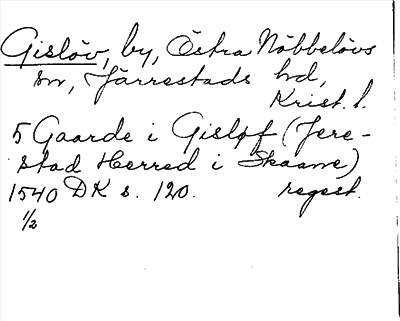 Gislöv, by, Östra Nöbbelövs
sn, Järrestads hd,
Krist. l.
5 Gaarde i Gisløf (Jere-
stad Herred i Skaane)
1540 DK s. 120. regest.
1/2